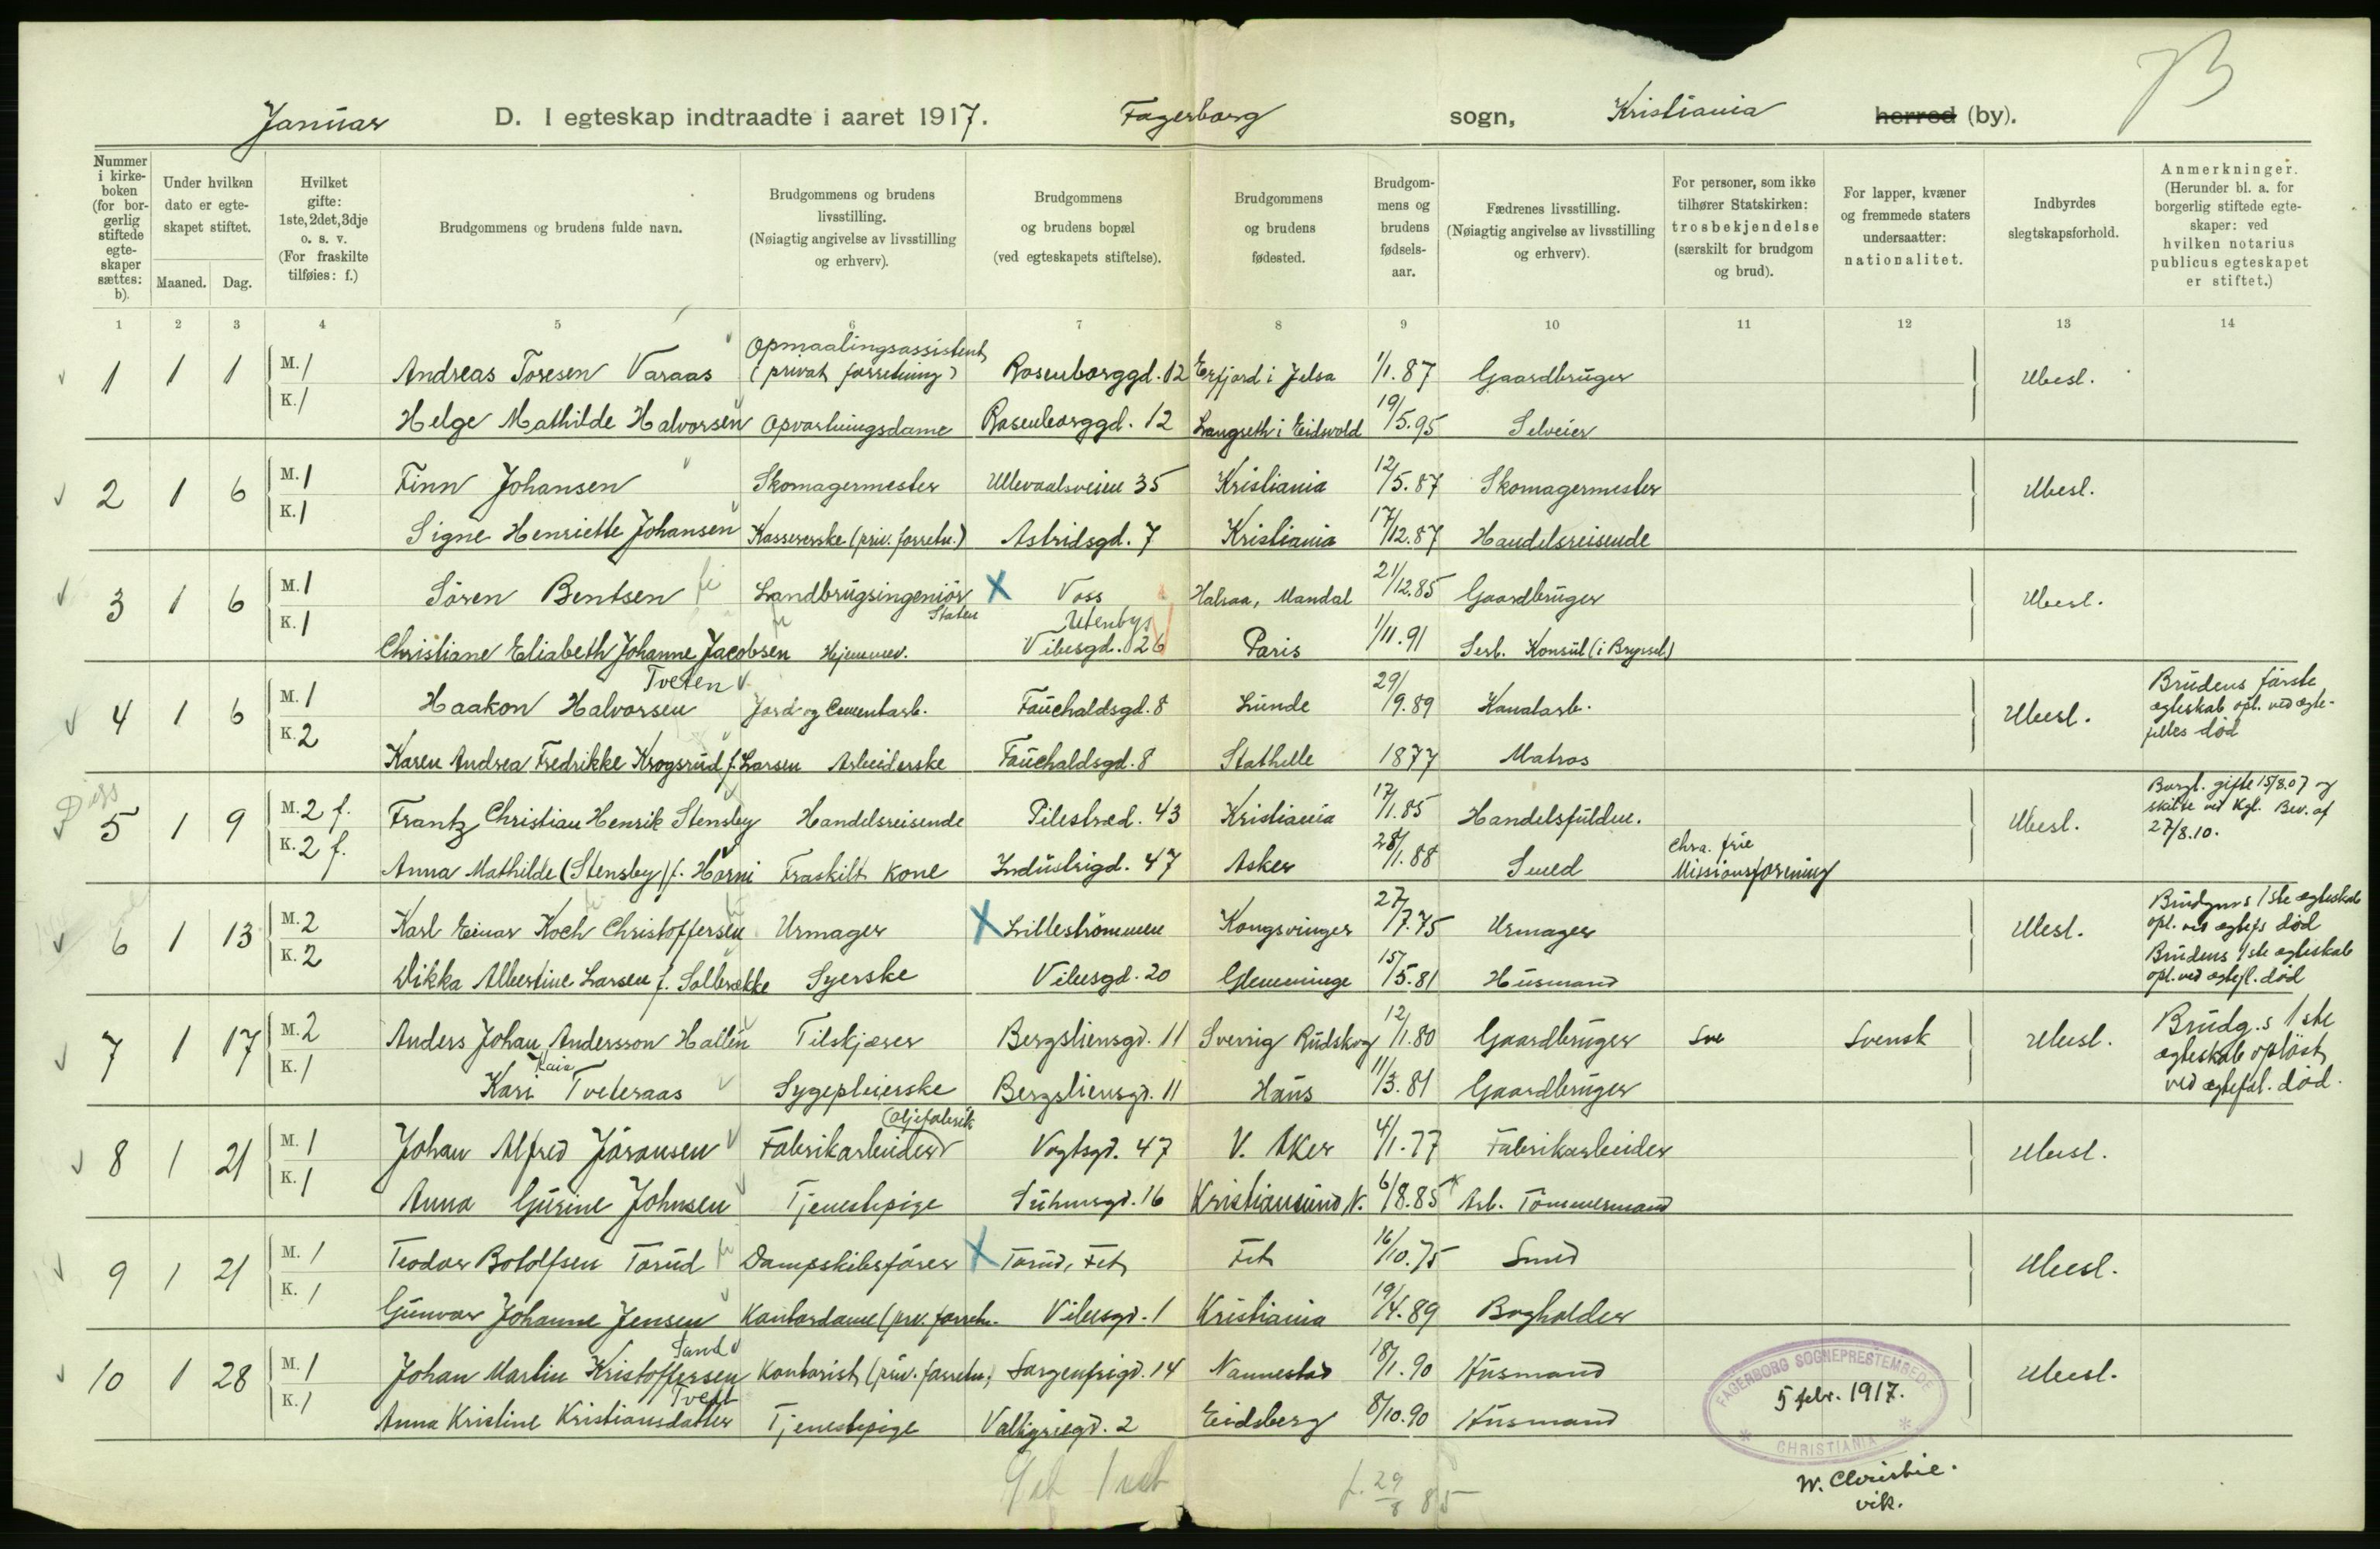 Januar D. I egteskap indtraadte i aaret 1917. Fagerborg sogn, Kristiania herred (by).
Nummer i kirke-boken (for bor-gerlig stiftede egte-skaper sættes: b).
Under hvilken dato er egte-skapet stiftet.
Maaned. Dag.
Hvilket gifte: 1ste, 2det, 3dje o. s. v. (For fraskilte tilføies: f.)
Brudgommens og brudens fulde navn.
Brudgommens og brudens livsstilling. (Nøiagtig angivelse av livsstilling og erhverv).
Brudgommens og brudens bopæl (ved egteskapets stiftelse).
Brudgommens og brudens fødested.
Brudgom-mens og brudens fødsels-aar.
Fædrenes livsstilling. (Nøiagtig angivelse av livsstilling og erhverv).
For personer, som ikke tilhører Statskirken: trosbekjendelse (særskilt for brudgom og brud).
For lapper, kvæner og fremmede staters undersaatter: nationalitet.
Indbyrdes slegtskapsforhold.
Anmerkninger. (Herunder bl. a. for borgerlig stiftede egte-skaper: ved hvilken notarius publicus egteskapet er stiftet.)
1 2 3 4 5 6 7 8 9 10 11 12 13 14
1 1 1 M. 1 Andreas Toresen Varaas Opmaalingsassistent (privat forretning) Rosenborggd. 12 Erfjord i Jelsa 1/1.87 Gaardbruger Ubesl.
K. 1 Helge Mathilde Halvorsen Opvartningsdame Rosenborggd. 12 Langseth i Eidsvold 19/5.95 Selveier
2 1 6 M. 1 Finn Johansen Skomagermester Ullevaalsveien 35 Kristiania 12/5.87 Skomagermester Ubesl.
K. 1 Signe Henriette Johansen Kassererske (priv. forretn.) Astridsgd. 7 Kristiania 17/12.87 Handelsreisende
3 1 6 M. 1 Sören Bentsen Landbrugsingeniör Staten X Voss Halsaa, Mandal 21/12.85 Gaardbruger Ubesl.
Utenbys
K. 1 Christiane Eliabeth Johanne Jacobsen Hjemmev. Vibesgd. 26 Paris 1/11.91 Serb. Konsul (i Bryssel)
4 1 6 M. 1 Haakon Halvorsen Tveten Jord- og Cementarb. Fauchaldsgd. 8 Lunde 29/9.89 Kanalarb. Ubesl. Brudens förste egteskab opl. ved egte-felles död
K. 2 Karen Andrea Fredrikke Krogsrud f. Larsen Arbeiderske Fauchaldsgd. 8 Stathelle 1877 Matros
5 1 9 M. 2 f. Frantz Christian Henrik Stensby Handelsreisende Pilestræd. 43 Kristiania 17/1.85 Handelsfuldm. Ubesl. Borgl. gifte 15/8.07 og skilte ved Kgl. Bev. af 27/8.10.
K. 2 f. Anna Mathilde (Stensby) f. Harni Fraskilt kone Industrigd. 47 Asker 28/1.88 Smed Chra. frie Missionsforening
6 1 13 M. 2 Karl Einar Koch Christoffersen Urmager X Lilleströmmen Kongsvinger 27/7.75 Urmager Ubesl. Brudgms 1ste egteskab opl. ved egtefs död
K. 2 Dikka Albertine Larsen f. Solbrække Syerske Vibesgd. 20 Glemminge 15/5.81 Husmand Brudens 1ste egteskab opl. ved egtefl. död
7 1 17 M. 2 Anders Johan Andersson Hallin Tilskjærer Bergsliensgd. 11 Sverrig Rudskog 12/1.80 Gaardbruger Sve Svensk Ubesl. Brudg.s 1ste egteskab oplöst ved egtefæl. död.
K. 1 Kari Kaia Tveteraas Sygepleierske Bergsliensgd. 11 Haus 11/3.81 Gaardbruger
8 1 21 M. 1 Johan Alfred Jöransen Fabrikarbeider (oljefabrik Vogtsgd. 47 V. Aker 4/1.77 Fabrikarbeider Ubesl.
K. 1 Anna Gurine Johnsen Tjenestepige Suhmsgd. 16 Kristiansund N. 6/8.85 Arb. Tömmermand
9 1 21 M. 1 Teodor Botolfsen Torud Dampskibsförer X Torud, Fet Fet 16/10.75 Smed Ubesl.
K. 1 Gunvor Johanne Jensen Kontordame (priv. forretn. Vibesgd. 1 Kristiania 19/4.89 Bogholder
10 1 28 M. 1 Johan Martin Kristoffersen Sand Kontorist (priv. forretn.) Sorgenfrigd. 14 Nannestad 18/1.90 Husmand Ubesl.
K. 1 Anna Kristine Kristiansdatter Tvedt Tjenestepige Valkyriegd. 2 Eidsberg 8/10.90 Husmand
FAGERBORG SOGNEPRESTEMBEDE
5 febr. 1917.
* CHRISTIANIA *
f. 29/8 85
W. Christie.
vik.